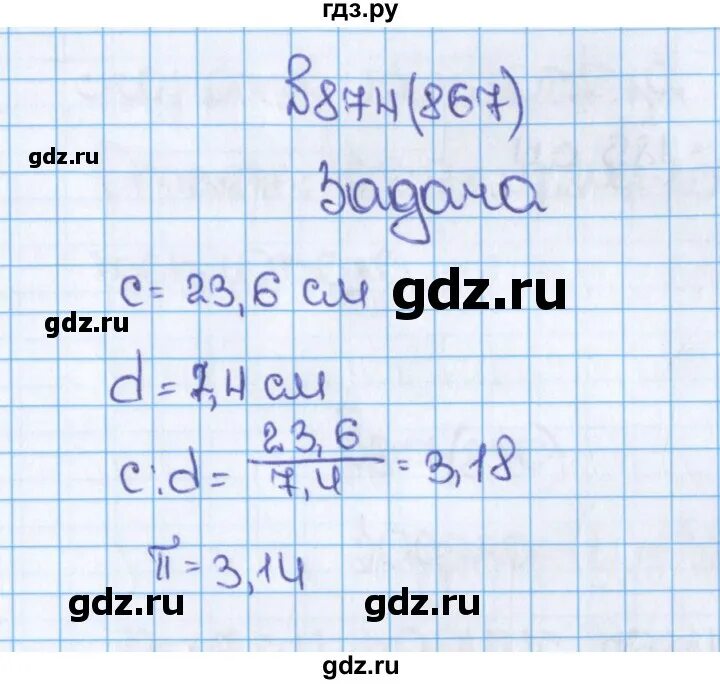 гдз.ру
В874(867)
gdz.ru
Задача
c = 23,6 см
gdz.ru
gdz.ru
d = 7,4 см
c : d = 23,6 / 7,4 = 3,18
π = 3,14
gdz.ru
gdz.ru
gdz.ru